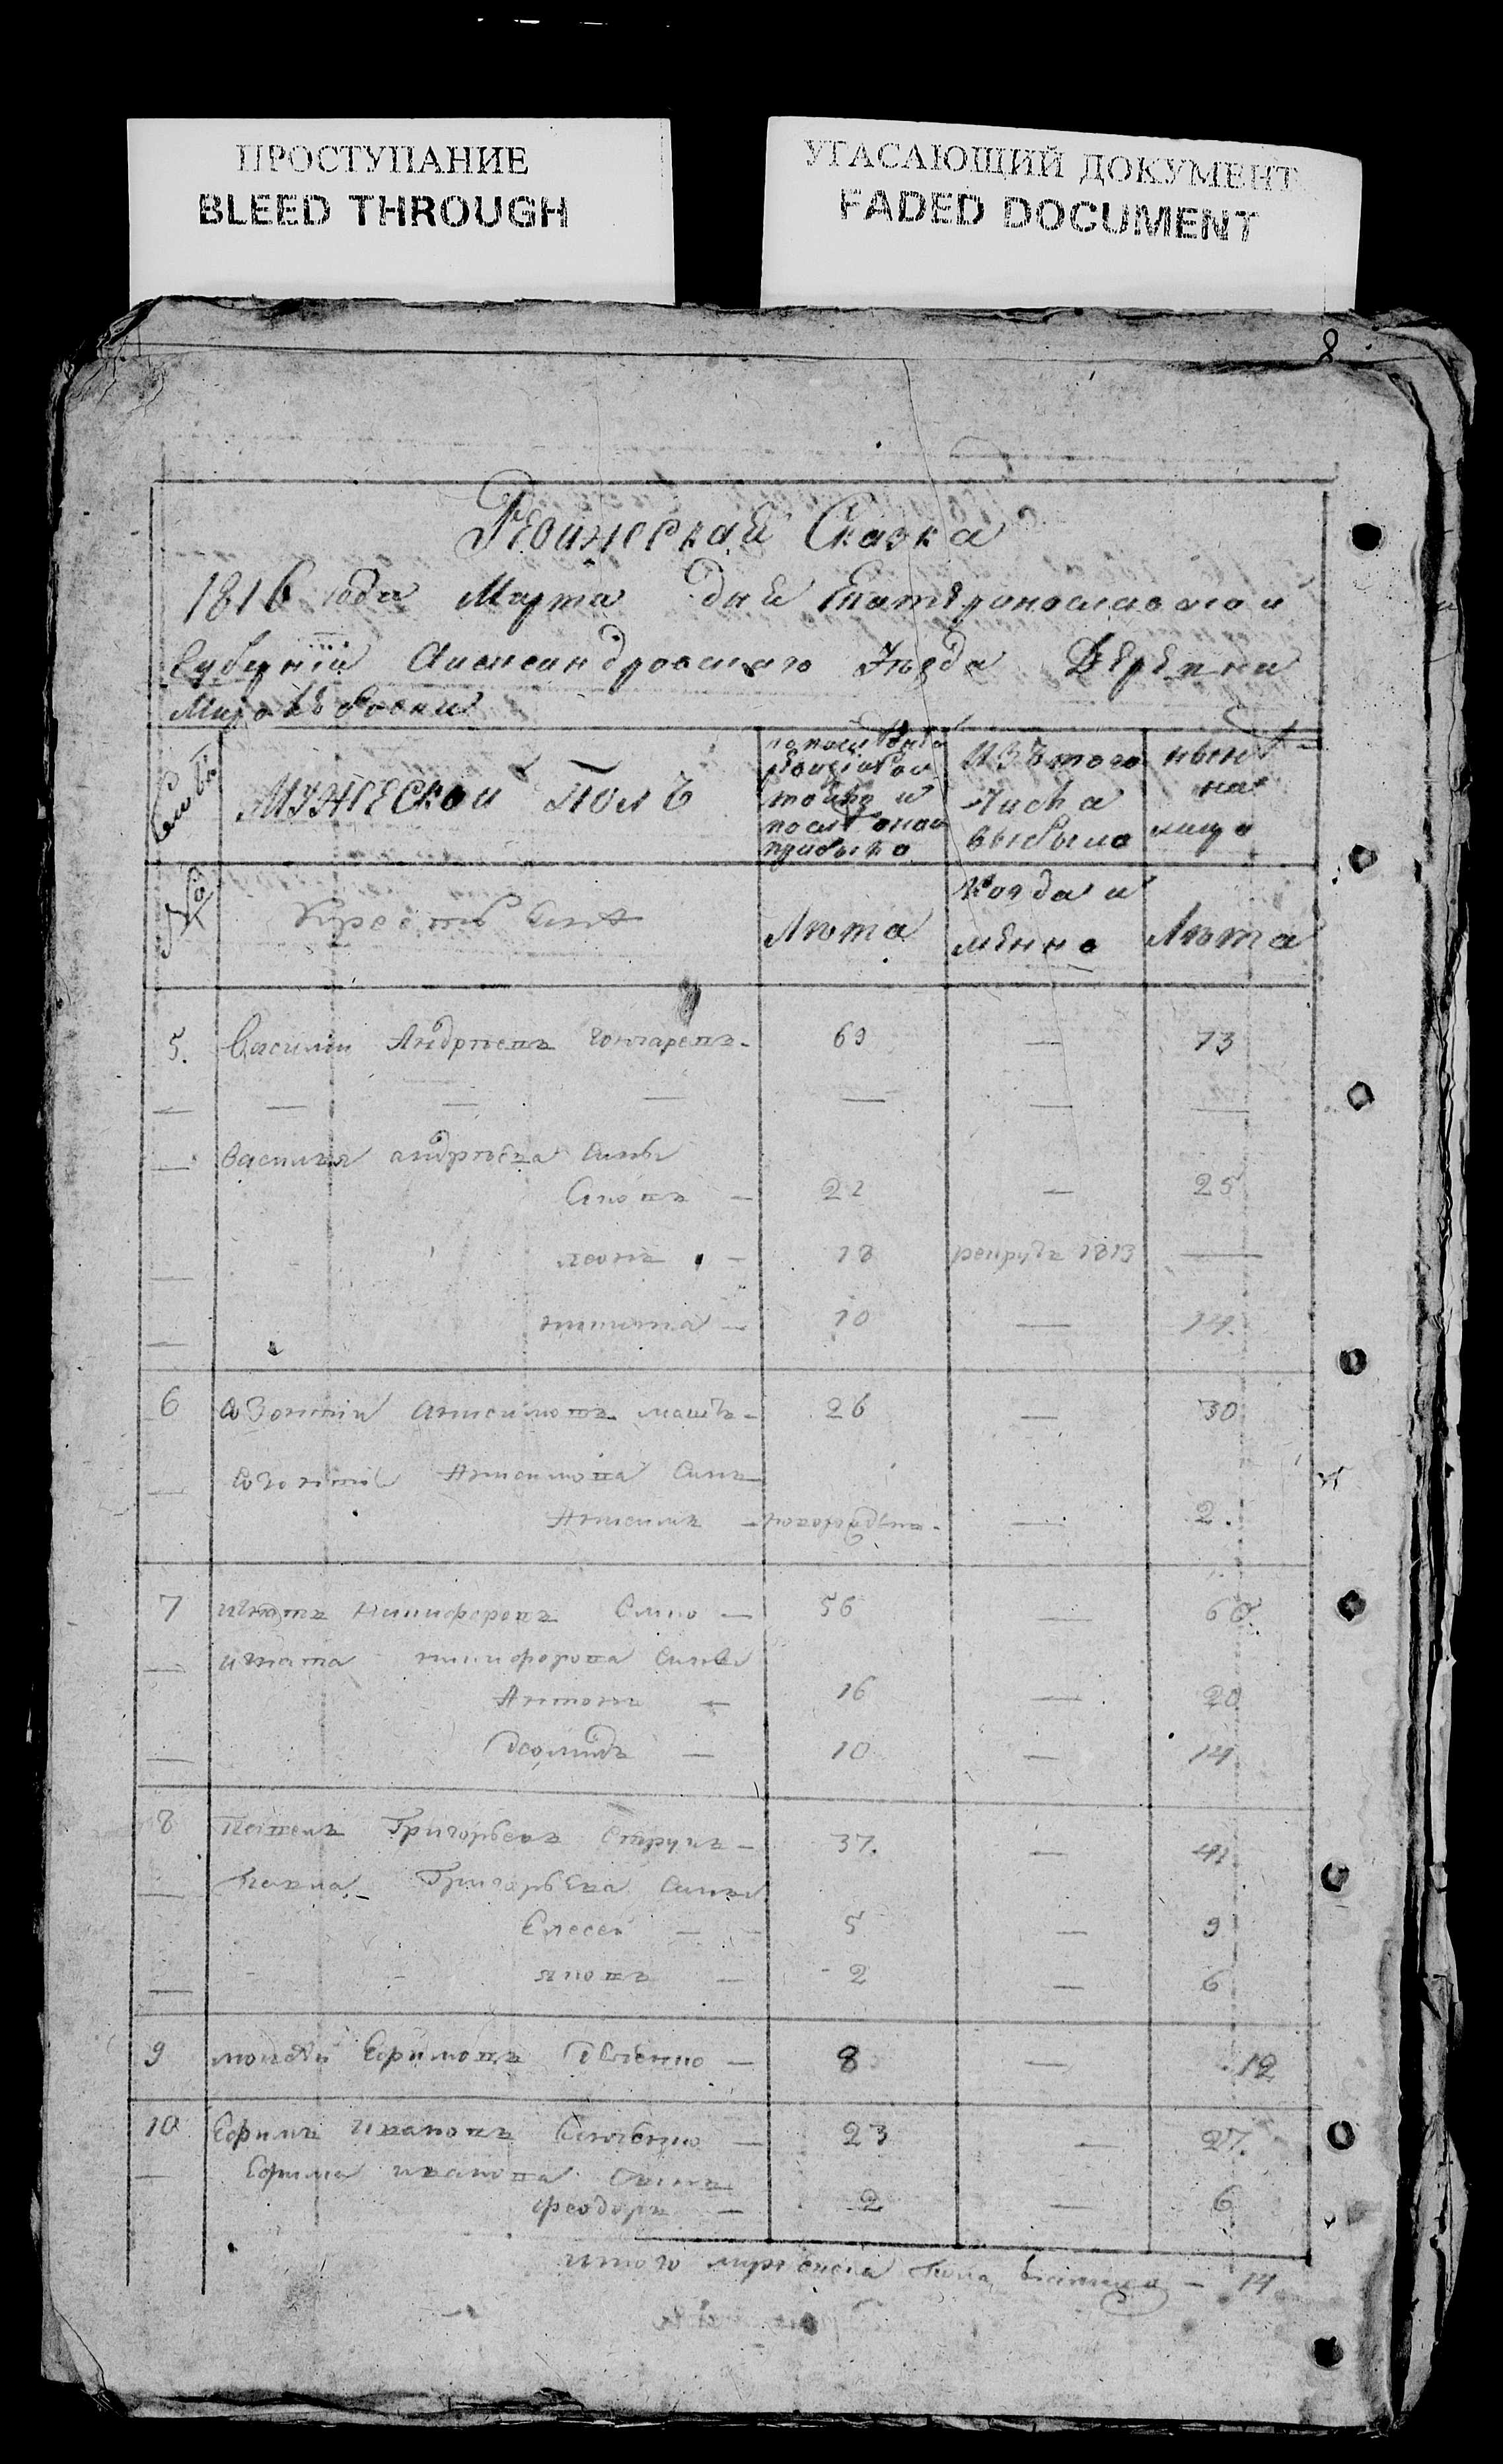 ПРОСТУПАНИЕ
BLEED THROUGH
УГАСАЮЩИЙ ДОКУМЕНТ
FADED DOCUMENT
8
Ревижская Сказка
1816 года Марта дня Екатеринославской
Губерніи Александровского Уезда Деревни
Семьи
Мужескои Полъ
по последней
ревизіи
состояло и
после оной
прибыло
Изъ того
числа
выбыло
ныне
на
лицо
№
Лета
Когда и
менно
Лета
5. Василии Андреевъ Гончаревъ - 69 — 73
— — — — — — —
— Василия андреева сины
Яковъ - 21 — 25
— леонъ - 18 рекрутъ 1813 —
— никита - 10 — 14.
6 Анисимовъ - 26 — 30
— Анисимова Синъ
Анисимъ - новорожденъ - — 2.
7 игнатъ Никифоровъ - 56 — 60.
— игната никифорова Сины
Антонъ - 16 — 20
— - 10 — 14
8 Павелъ Григорьевъ - 37. — 41
— Павла Григорьева Сины
Елесеи - - 5 — 9
— яковъ - 2 — 6
9 моисеи Ефимовъ - 8 — 12
10 Ефимъ Ивановъ - 23 — 27.
— Ефима иванова Синъ
феодоръ - 2 — 6
итого мужеска пола - 14